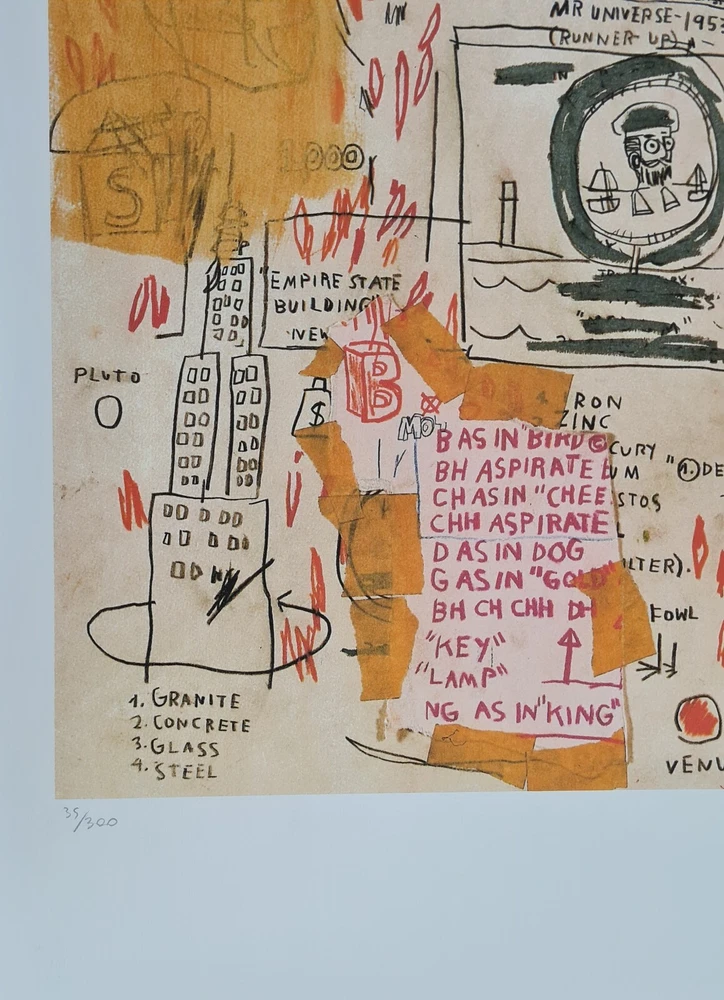 MR UNIVERSE-1953
(RUNNER-UP)
IN
S
1000
"EMPIRE STATE
BUILDING"
NEW
PLUTO
$
B
MO
4. IRON
ZINC
B AS IN "BIRD ©
BH ASPIRATE
CH AS IN "CHEE
CHH ASPIRATE
D AS IN DOG
G AS IN "GOLD"
BH CH CHH DH
"KEY"
"LAMP"
NG AS IN "KING"
CURY "①.DE
UM
STOS
LTER).
FOWL
VENU
1. GRANITE
2. CONCRETE
3. GLASS
4. STEEL
35/300